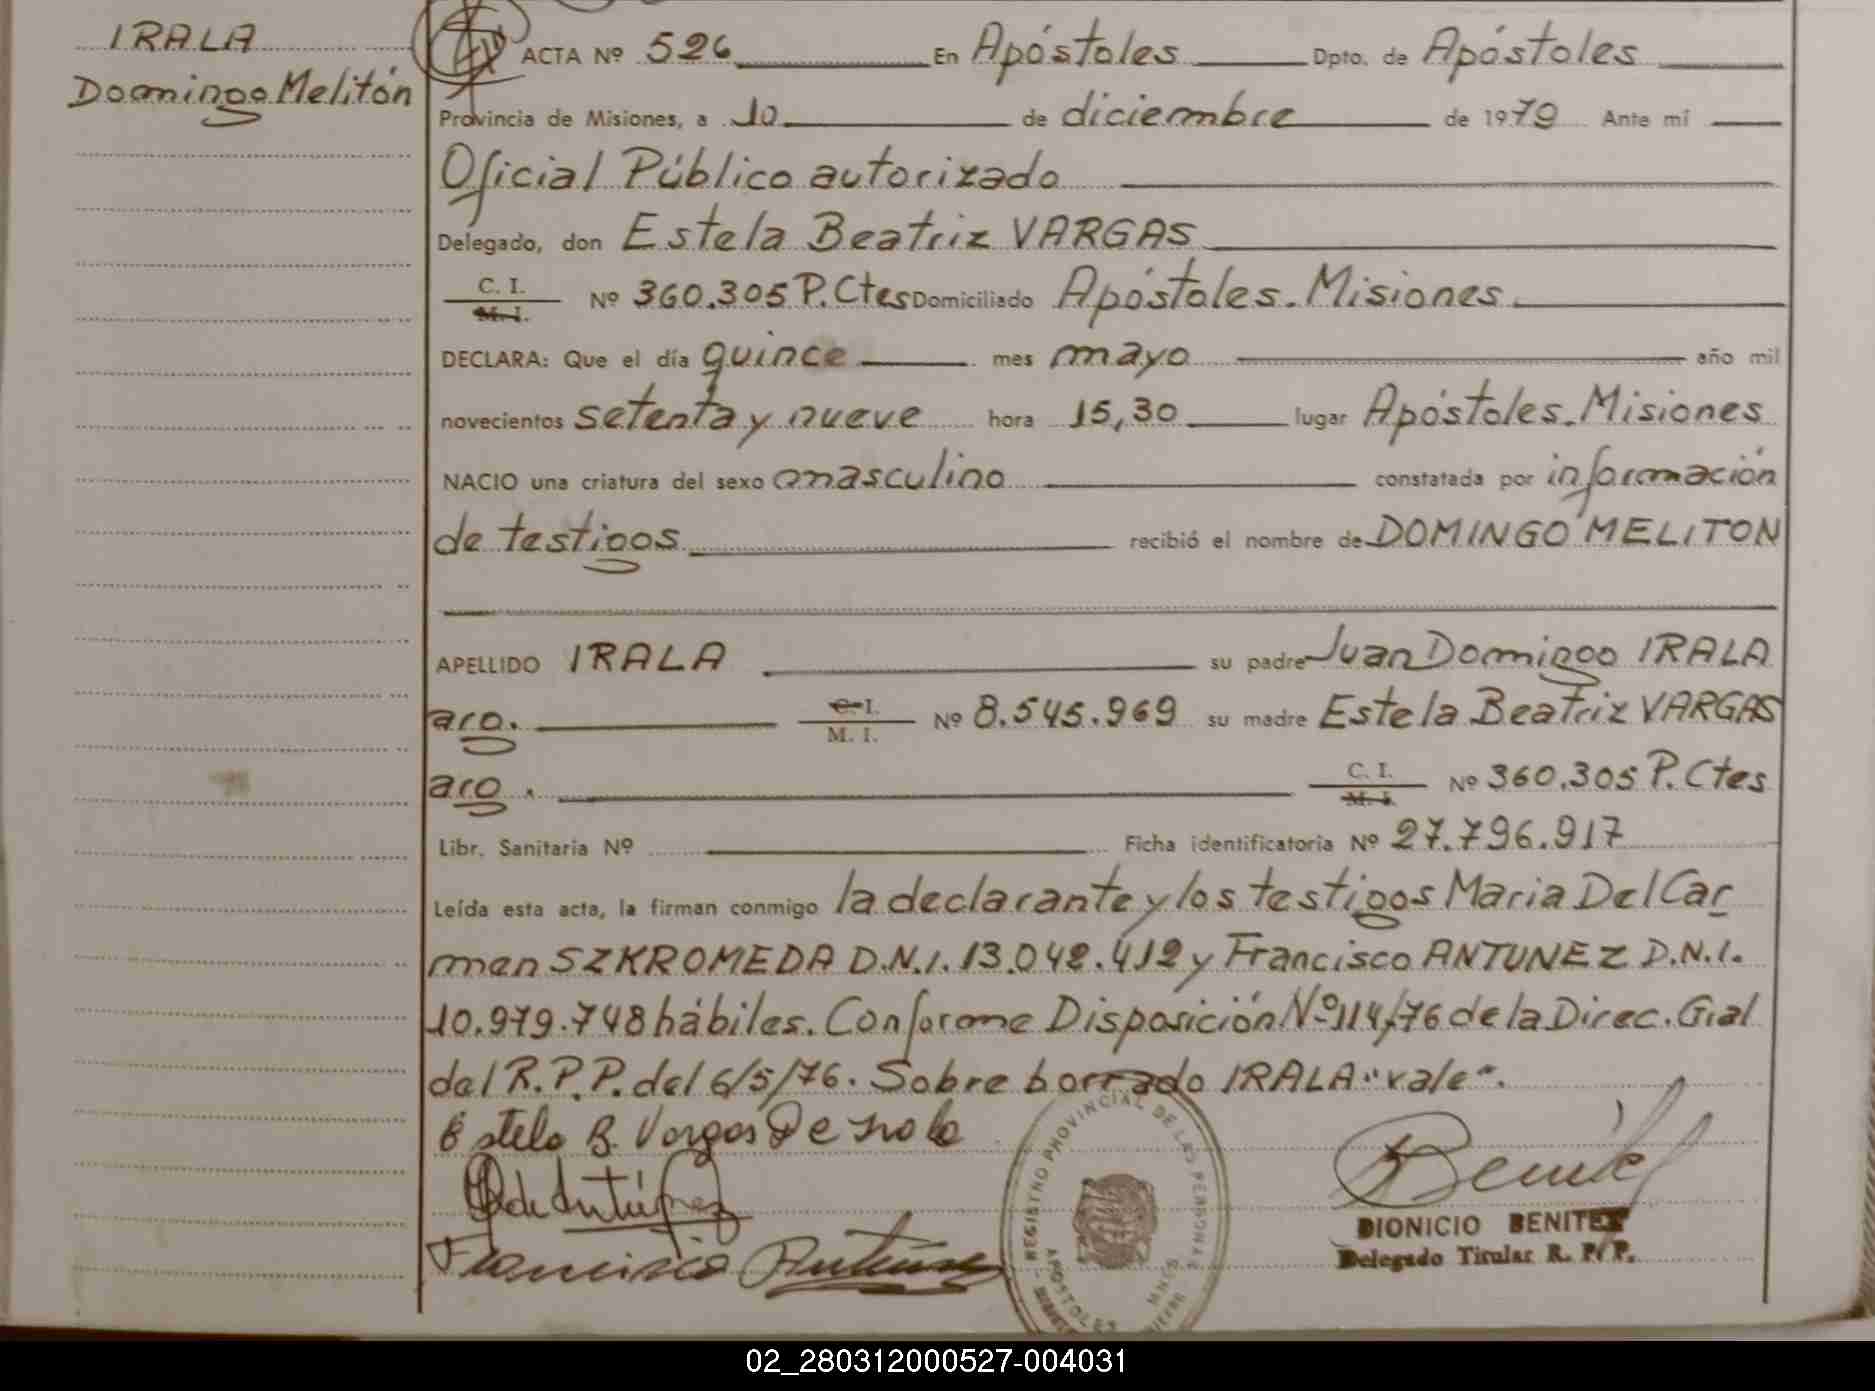 IRALA
Domingo Melitón
ACTA Nº 526 En Apóstoles Dpto. de Apóstoles
Provincia de Misiones, a 10 de diciembre de 1979 Ante mí
Oficial Público autorizado
Delegado, don Estela Beatriz VARGAS
C. I.
M. I.
Nº 360.305 P. Ctes Domiciliado Apóstoles. Misiones
DECLARA: Que el día quince mes mayo año mil
novecientos setenta y nueve hora 15,30 lugar Apóstoles. Misiones
NACIO una criatura del sexo masculino constatada por información
de testigos recibió el nombre de DOMINGO MELITON
APELLIDO IRALA su padre Juan Domingo IRALA
aro. C. I. M. I. Nº 8.545.969 su madre Estela Beatriz VARGAS
aro. C. I. M. I. Nº 360.305 P. Ctes
Libr. Sanitaria Nº Ficha identificatoria Nº 27.796.917
Leída esta acta, la firman conmigo la declarante y los testigos Maria Del Car
men SZKROMEDA D.N.I. 13.042.412 y Francisco ANTUNEZ D.N.I.
10.979.748 hábiles. Conforme Disposición Nº 114/76 de la Direc. Gral
del R.P.P. del 6/5/76. Sobre borrado IRALA "vale".
Estela B. Vargas De Irala
de Antúnez
Francisco Antunez
REGISTRO PROVINCIAL DE LAS PERSONAS
APOSTOLES
MNES
Benitez
DIONICIO BENITEZ
Delegado Titular R. P. P.
02_280312000527-004031